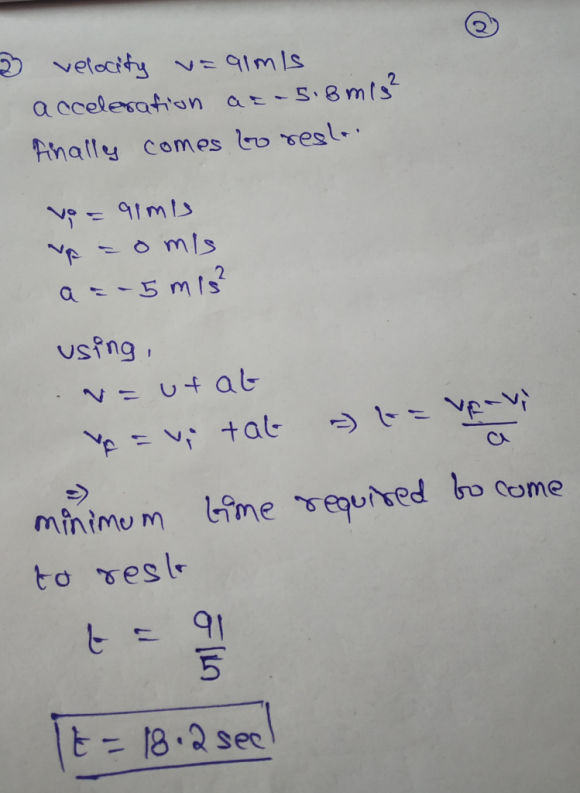 ②
② velocity v = 91m/s
acceleration a = - 5.8m/s²
finally comes to rest.
vᵢ = 91m/s
v_F = 0 m/s
a = - 5 m/s²
using,
v = u + at
v_F = vᵢ + at ⇒ t = (v_F - vᵢ)/a
⇒
minimum time required to come
to rest
t = 91/5
t = 18.2 sec